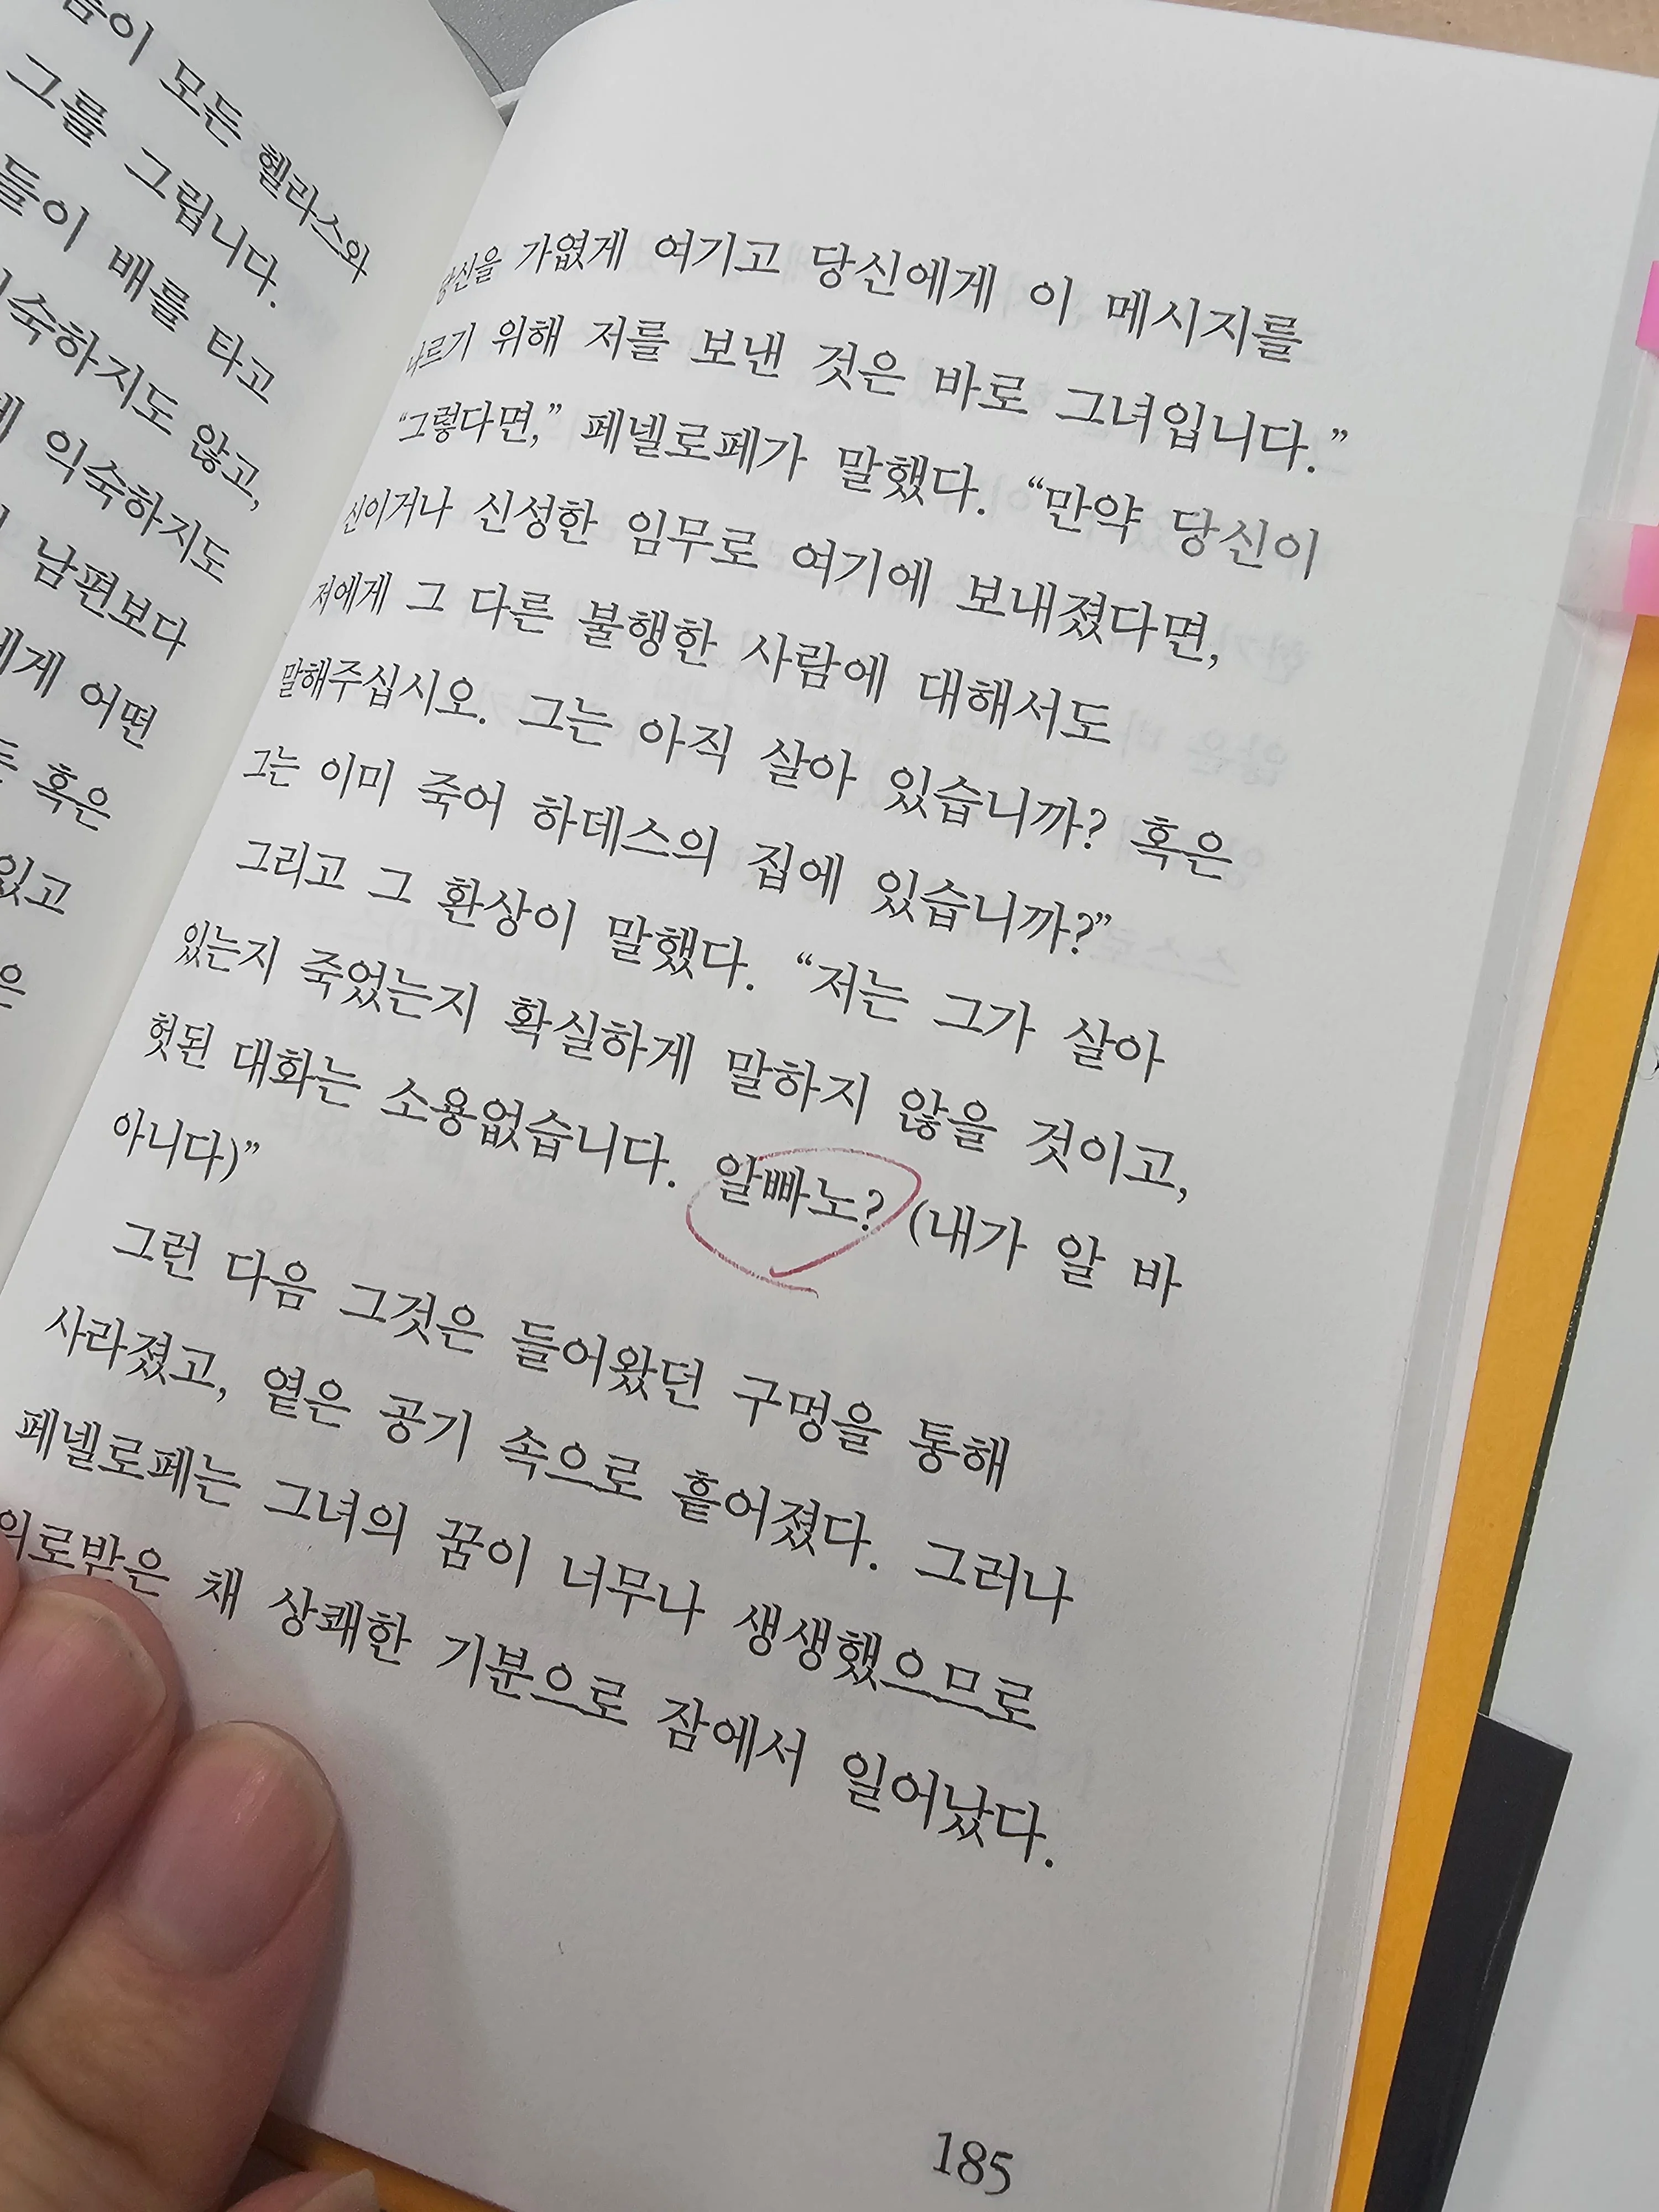 모든 헬라스와
그를 그립니다.
들이 배를 타고
않고,
익숙하지도
남편보다
어떤
혹은
당신을 가엾게 여기고 당신에게 이 메시지를
나르기 위해 저를 보낸 것은 바로 그녀입니다.”
“그렇다면,” 페넬로페가 말했다. “만약 당신이
신이거나 신성한 임무로 여기에 보내졌다면,
저에게 그 다른 불행한 사람에 대해서도
말해주십시오. 그는 아직 살아 있습니까? 혹은
그는 이미 죽어 하데스의 집에 있습니까?”
그리고 그 환상이 말했다. “저는 그가 살아
있는지 죽었는지 확실하게 말하지 않을 것이고,
헛된 대화는 소용없습니다. 알빠노? (내가 알 바
아니다)”
그런 다음 그것은 들어왔던 구멍을 통해
사라졌고, 옅은 공기 속으로 흩어졌다. 그러나
페넬로페는 그녀의 꿈이 너무나 생생했으므로
위로받은 채 상쾌한 기분으로 잠에서 일어났다.
185